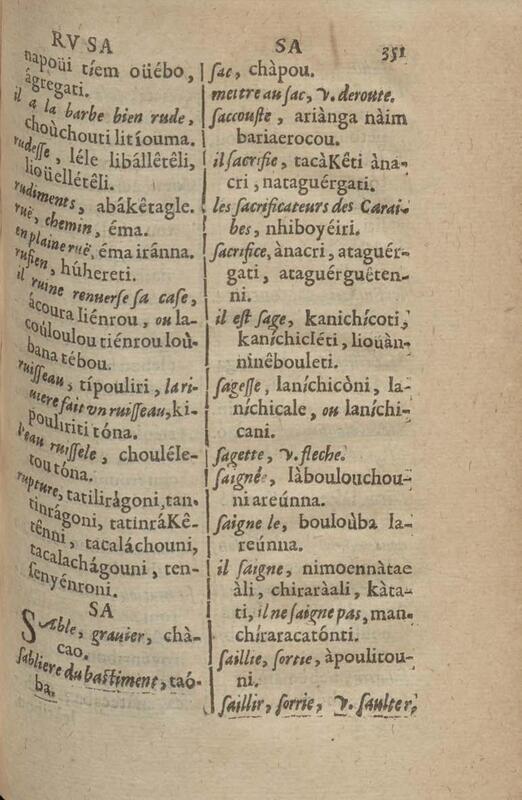 RV SA
SA
351
napoüi tíem oüébo,
ágregati.
il a la barbe bien rude,
choùchouti litíouma.
rudesse, léle libállêtêli,
lioüellétêli.
rudiments, abákêtagle.
ruë, chemin, éma.
en plaine ruë, éma iránna.
rufien, húhereti.
il ruine renuerse sa case,
ácoura liénrou, ou la-
coúloulou tiénrou loù-
bana tébou.
ruisseau, típouliri, la ri-
uiere fait vn ruisseau, ki-
pouliriti tóna.
l'eau ruissele, chouléle-
tou tóna.
rupture, tatilirágoni, tan-
tinrágoni, tatinráKê-
tênni, tacaláchouni,
tacalachágouni, ten-
senyénroni.
SA
SAble, grauier, chà-
cao.
sabliere du bastiment, taó-
ba.
sac, chàpou.
mettre au sac, v. deroute.
saccouste, ariànga nàim
bariaerocou.
il sacrifie, tacàKêti àna-
cri, nataguérgati.
les sacrificateurs des Carai-
bes, nhiboyéiri.
sacrifice, ànacri, ataguér-
gati, ataguérguêten-
ni.
il est sage, kanichícoti,
kaníchicléti, liouàn-
ninêbouleti.
sagesse, laníchicòni, la-
níchicale, ou laníchi-
cani.
sagette, v. fleche.
saignée, làboulouchou-
ni areúnna.
saigne le, bouloùba la-
reúnna.
il saigne, nimoennàtae
àli, chiraràali, kàta-
ti, il ne saigne pas, man-
chíraracatónti.
saillie, sortie, àpoulitou-
ni.
saillir, sorrie, v. saulter,